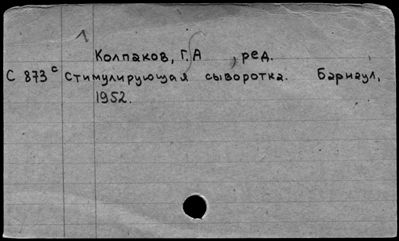 1
Колпаков, Г.А ,ред.
С 873с Стимулирующая сыворотка. Барнаул,
1952.